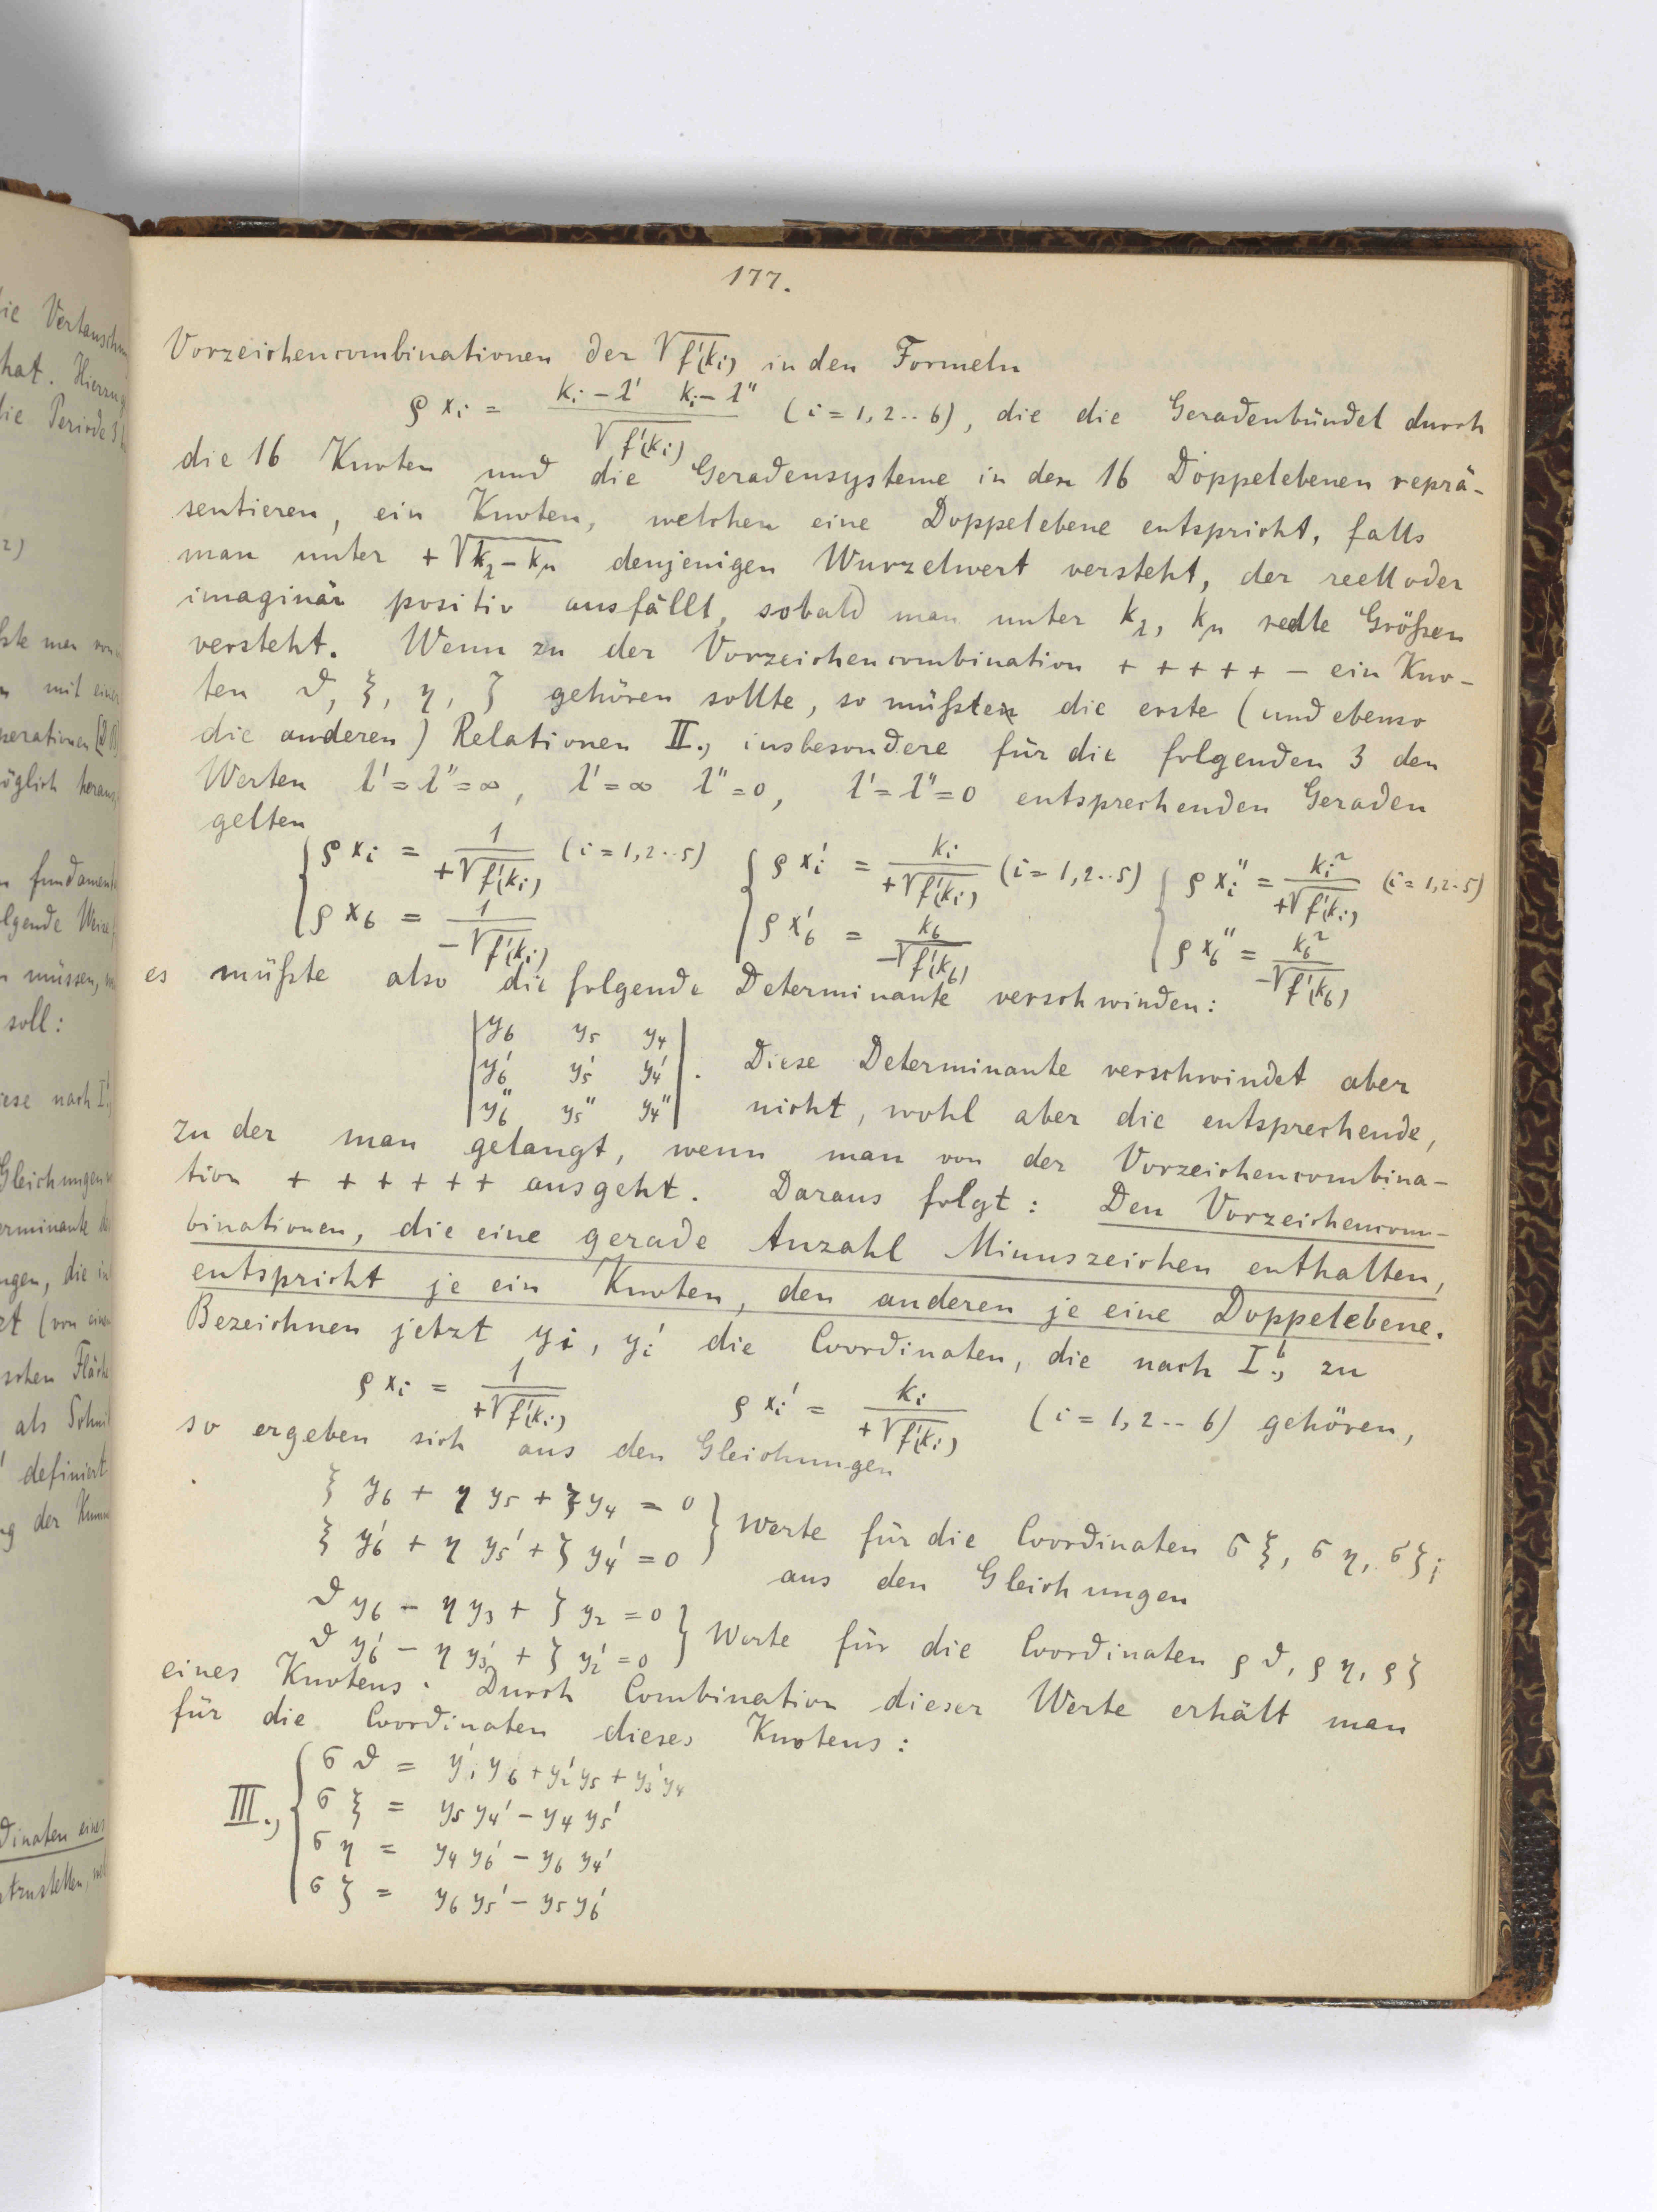 177.
Vorzeichencombinationen der √f'(ki) in den Formeln
ρ xi = (ki – l' ki – l'') / √f'(ki) (i = 1, 2 .. 6), die die Geradenbündel durch
die 16 Knoten und die Geradensysteme in den 16 Doppelebenen reprä-
sentieren, ein Knoten, welchen eine Doppelebene entspricht, falls
man unter + √kλ – kμ denjenigen Wurzelwert versteht, der reell oder
imaginär positiv ausfällt, sobald man unter kλ, kμ reelle Größen
versteht. Wenn zu der Vorzeichencombination + + + + + – ein Kno-
ten ϑ, ξ, η, ζ gehören sollte, so müßten die erste (und ebenso
die anderen) Relationen II., insbesondere für die folgenden 3 den
Werten l' = l'' = ∞, l' = ∞ l'' = 0, l' = l'' = 0 entsprechenden Geraden
gelten
{ ρ xi = 1 / +√f'(ki) (i = 1, 2 .. 5) { ρ xi' = ki / +√f'(ki) (i = 1, 2 .. 5) { ρ xi'' = ki² / +√f'(ki) (i = 1, 2 .. 5)
ρ x6 = 1 / –√f'(ki) ρ x6' = k6 / –√f'(k6) ρ x6'' = k6² / –√f'(k6)
es müßte also die folgende Determinante verschwinden:
| y6 y5 y4 |
| y6' y5' y4' | . Diese Determinante verschwindet aber
| y6'' y5'' y4'' | nicht, wohl aber die entsprechende,
zu der man gelangt, wenn man von der Vorzeichencombina-
tion + + + + + + ausgeht. Daraus folgt: Den Vorzeichencom-
binationen, die eine gerade Anzahl Minuszeichen enthalten,
entspricht je ein Knoten, den anderen je eine Doppelebene.
Bezeichnen jetzt yi, yi' die Coordinaten, die nach I.b, zu
ρ xi = 1 / +√f'(ki) ρ xi' = ki / +√f'(ki) (i = 1, 2 -- 6) gehören,
so ergeben sich aus den Gleichungen
ξ y6 + η y5 + ζ y4 = 0
ξ y6' + η y5' + ζ y4' = 0 } Werte für die Coordinaten σ ξ, σ η, σ ζ;
aus den Gleichungen
ϑ y6 – η y3 + ζ y2 = 0
ϑ y6' – η y3' + ζ y2' = 0 } Werte für die Coordinaten ρ ϑ, ρ η, ρ ζ
eines Knotens. Durch Combination dieser Werte erhält man
für die Coordinaten dieses Knotens:
III., { σ ϑ = y1' y6 + y2' y5 + y3' y4
σ ξ = y5 y4' – y4 y5'
σ η = y4 y6' – y6 y4'
σ ζ = y6 y5' – y5 y6'